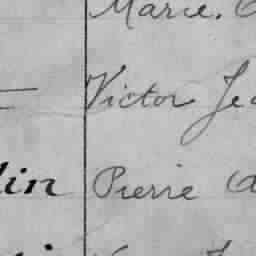 Marie.
Victor Je
lin Pierre